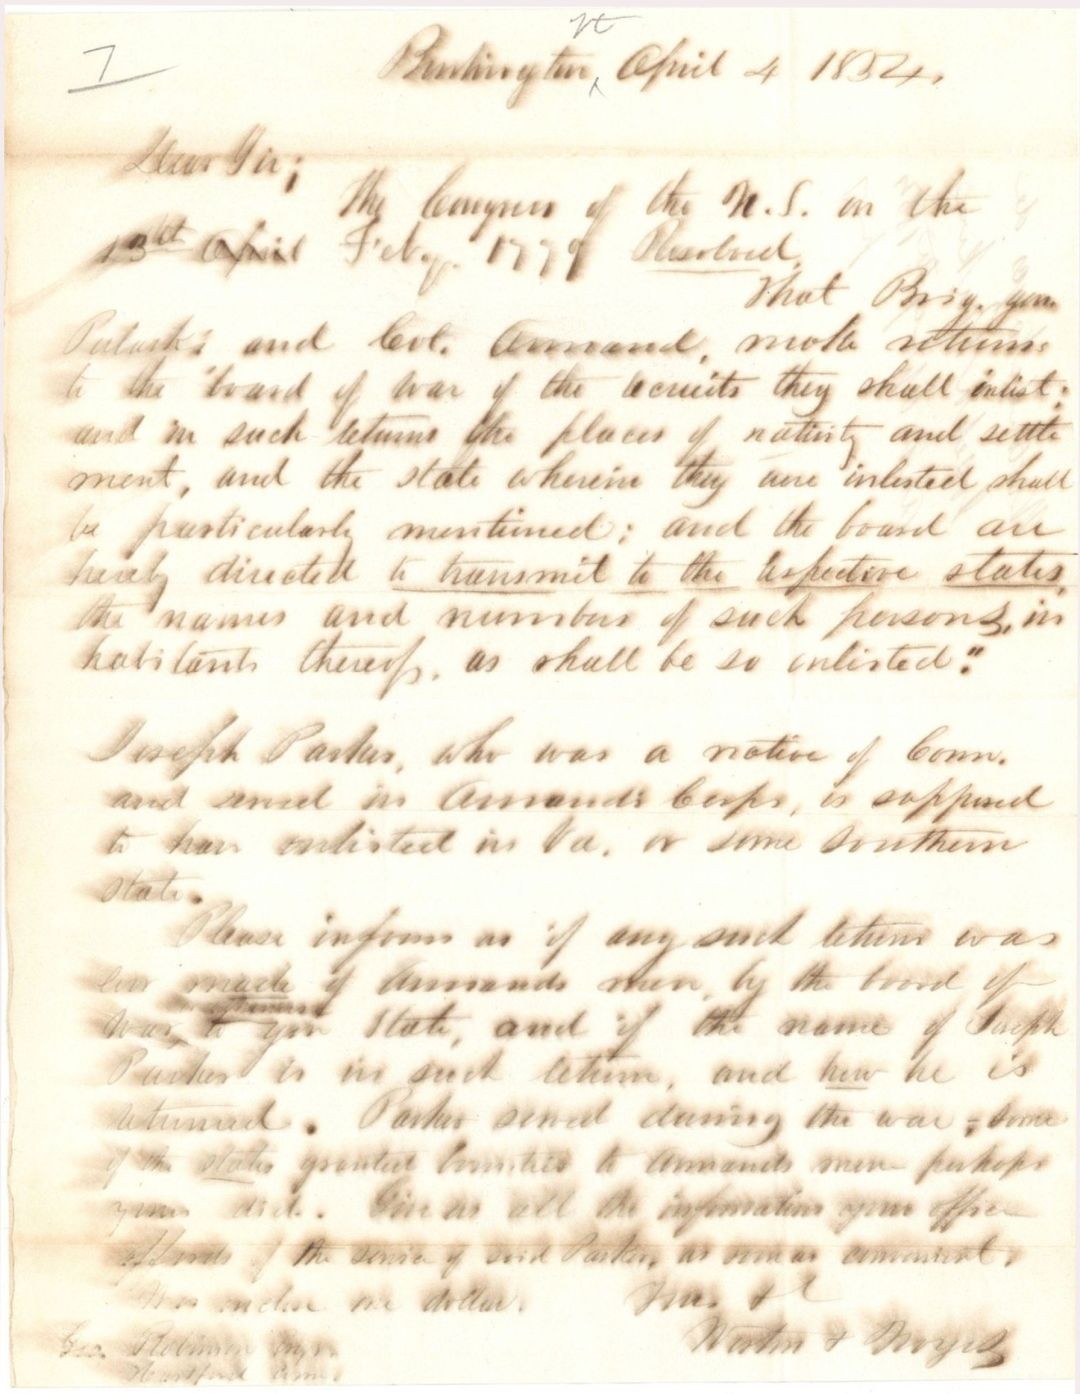 7
Vt
Burlington, April 4 1854.
Dear Sir;
The Congress of the U.S. on the
13th April Feby. 1779 Resolved,
That Brig. gen
Pulaski and Col. Armand, make returns
to the board of war of the recruits they shall inlist;
and in such returns the places of nativity and settle
ment, and the state wherein they were inlisted shall
be particularly mentioned; and the board are
hereby directed to transmit to the respective states,
the names and numbers of such persons, in
habitants thereof, as shall be so inlisted."
Joseph Parker, who was a native of Conn.
and served in Armands Corps, is supposed
to have enlisted in Va. or some southern
state.
Please inform us if any such return was
ever made of Armands men, by the board of
war, to your State, and if the name of Joseph
Parker is in such return, and how he is
returned. Parker served during the war; some
of the states granted bounties to Armands men perhaps
yours did. Give us all the information your office
affords of the service of said Parker, as soon as convenient.
enclose one dollar. Yours &c
Weston & Noyes
Robinson Esqr.
Hartford Conn.